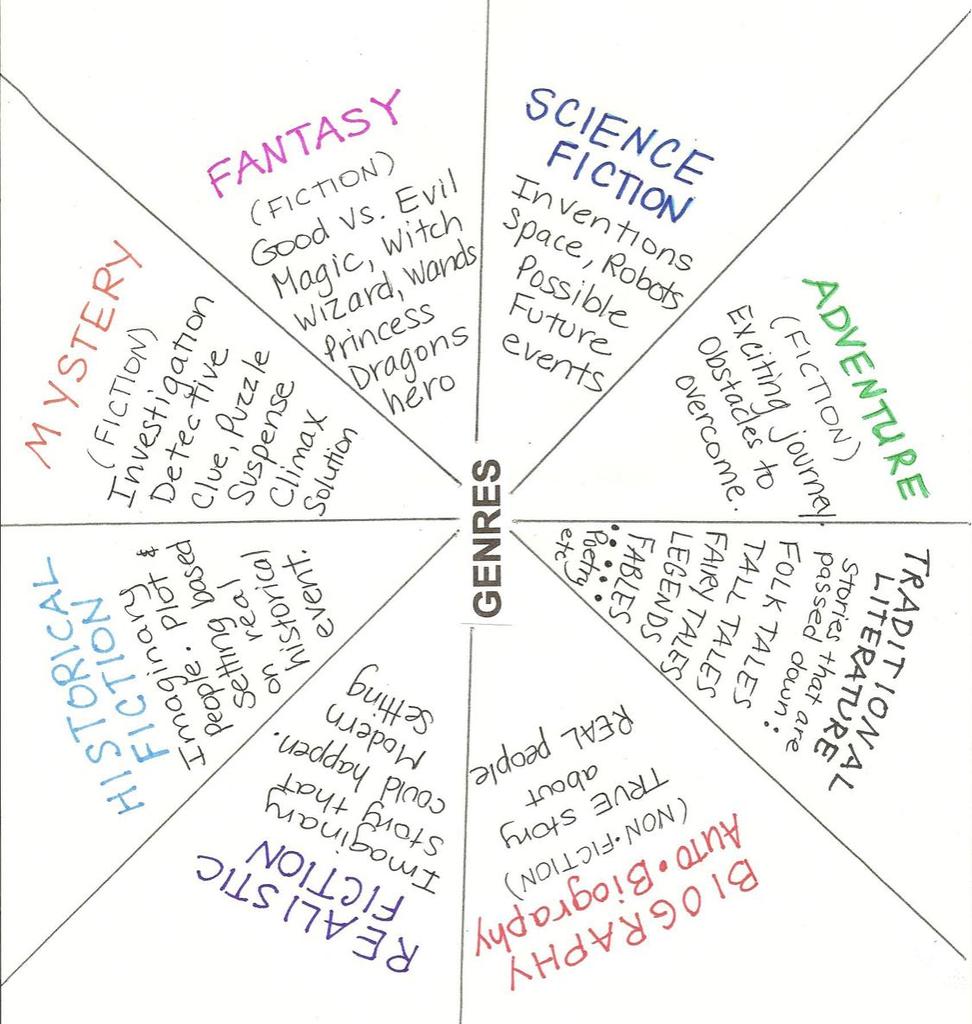 FANTASY
(FICTION)
Good vs. Evil
Magic, witch
wizard, wands
Princess
Dragons
hero
SCIENCE
FICTION
Inventions
Space, Robots
Possible
Future
events
ADVENTURE
(FICTION)
Exciting journey.
Obstacles to
overcome.
TRADITIONAL
LITERATURE
Stories that are
passed down:
FOLK TALES
TALL TALES
FAIRY TALES
LEGENDS
FABLES
Poetry
etc.
BIOGRAPHY
AUTO•Biography
(NON-FICTION)
TRUE story
about
REAL people
REALISTIC
FICTION
Imaginary
story that
could happen.
Modern
Setting
HISTORICAL
FICTION
Imaginary
people. Plot &
Setting based
on real
historical
event.
MYSTERY
(FICTION)
Investigation
Detective
Clue, Puzzle
Suspense
Climax
Solution
GENRES